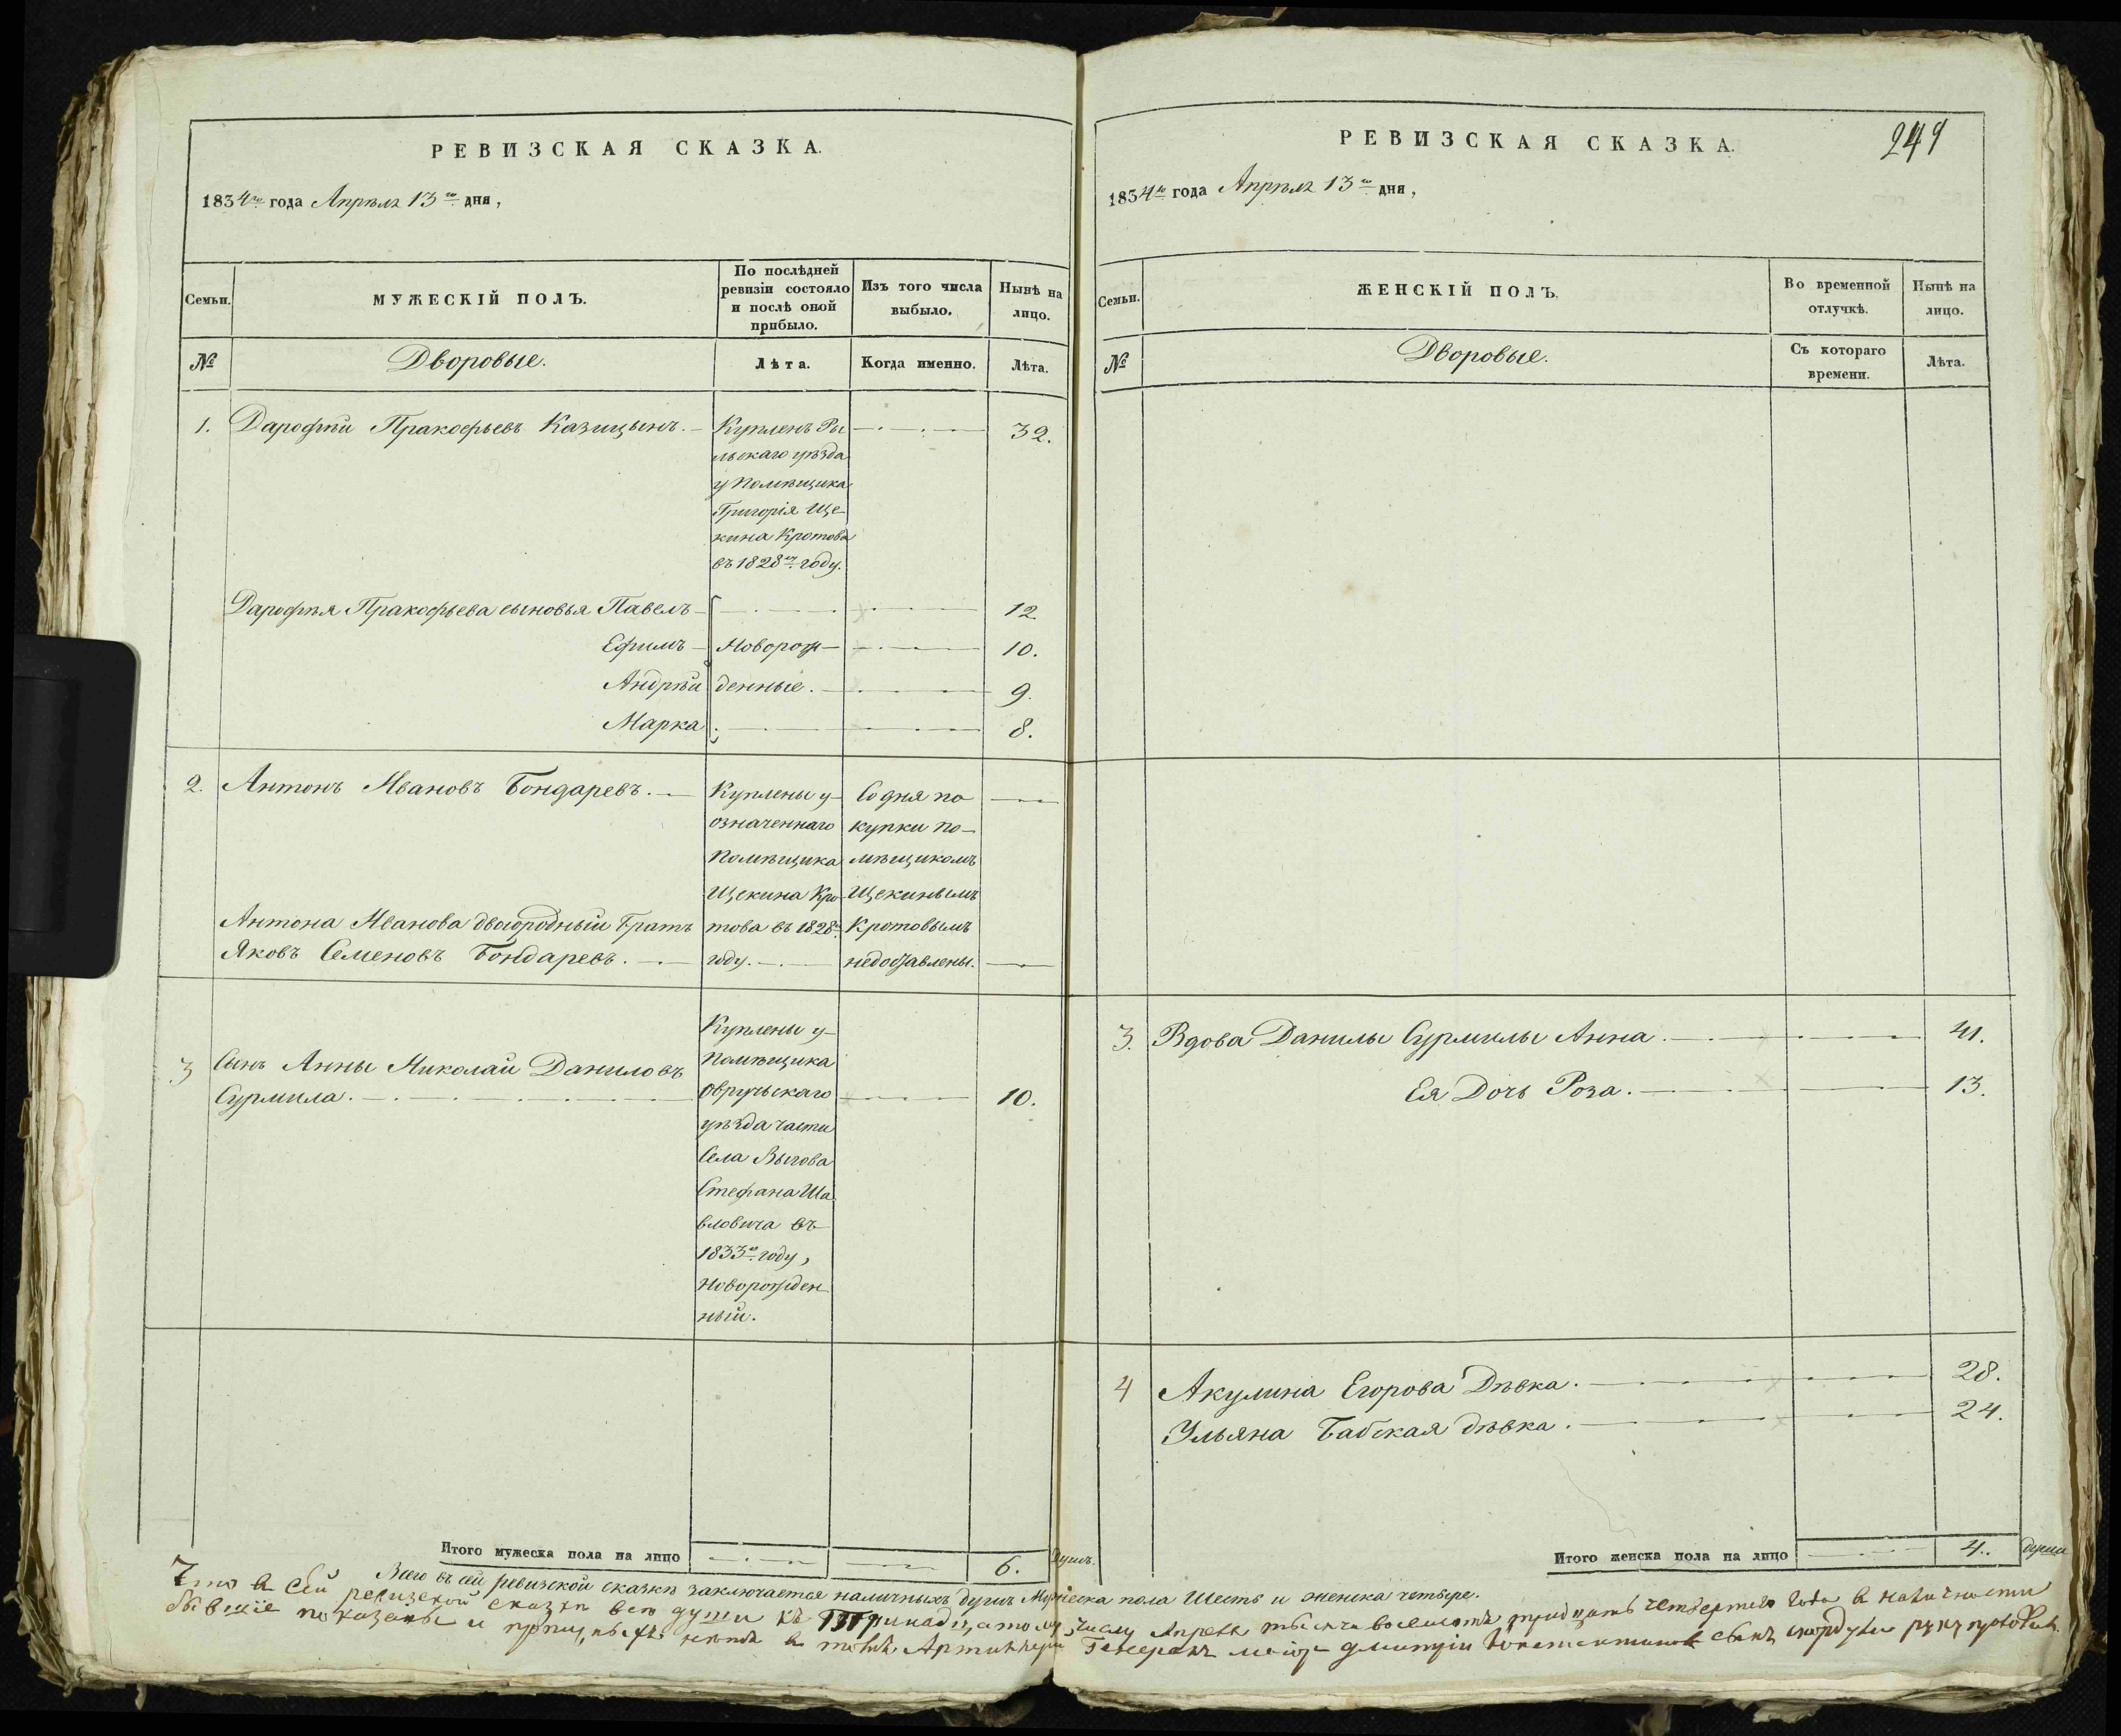 РЕВИЗСКАЯ СКАЗКА.
1834го года Апрѣля 13го дня,
Семьи.
МУЖЕСКІЙ ПОЛЪ.
По послѣдней
ревизіи состояло
и послѣ оной
прибыло.
Изъ того числа
выбыло.
Нынѣ на
лицо.
№
Дворовые.
Лѣта.
Когда именно.
Лѣта.
1. Дарофѣй Пракофьевъ Казицынъ. 32.
Купленъ Ры
льскаго уѣзда
у Помѣщика
Григорія Ще
кина Кротова
въ 1828мъ году.
Дарофѣя Пракофьева сыновья Павелъ 12
Ефимъ Новорож 10.
Андрѣй денные. 9.
Марка 8.
2. Антонъ Ивановъ Бондаревъ.
Куплены у
означеннаго
Помѣщика
Щекина Кро
това въ 1828мъ
году.
Со дня по
купки по-
мѣщикомъ
Щекинымъ
Кротовымъ
недоставлены.
Антона Иванова двоюродный братъ
Яковъ Семеновъ Бондаревъ.
3 Сынъ Анны Николай Даниловъ
Сурмила. 10.
Куплены у
Помѣщика
Овручьскаго
уѣзда части
Села Выгова
Стефана Ша
вловича въ
1833мъ году,
новорожден
ный.
Итого мужеска пола на лицо 6. Душъ.
РЕВИЗСКАЯ СКАЗКА.
249
1834го года Апрѣля 13го дня,
Семьи.
ЖЕНСКІЙ ПОЛЪ.
Во временной
отлучкѣ.
Нынѣ на
лицо.
№
Дворовые.
Съ котораго
времени.
Лѣта.
3. Вдова Данилы Сурмилы Анна. 41.
Ея Дочь Роза. 13.
4 Акулина Егорова Дѣвка. 28.
Ульяна Бабская дѣвка. 24.
Итого женска пола на лицо 4. души
Всего въ сей ревизской сказкѣ заключается наличныхъ душъ Мужеска пола Шесть и женска четыре.
Что в сей ревизской сказки все души къ числу Апреля тысяча восемсотъ тридцать четвертаго года в наличности
показаны и в томъ Генералъ маіоръ сынъ